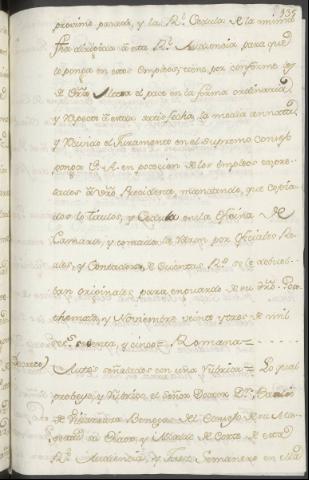 135
proximo pasado, y la Rl. Cedula de la misma
fha dirigida a esta Rl. Audiencia para que
lo ponga en este Empleo; tiene por conforme
el pase en la forma ordinaria
y respecto a estar satisfecha la media annata
y hecho el Juramento en el Supremo Consejo
ponga en posecion de los empleos expre-
sados a dho. Precidente, mandando, que copia-
dos los titulos, y Cedula en la Oficina de
Camara, y tomada la razon por Oficiales Re-
ales, y Contadores, de Quentas Rs. se le debuel-
ban originales para en guarda de su dro.
y Noviembre veinte y tres de mil
setecs. setenta, y cinco = Romana =
Decreto) Autos señalados con una rubrica = Lo qual
proveyo, y rubricó, el Señor Doctor Dn.
de Villarrasa Benegas del Consejo de su Ma-
gestad su Oidor, y Alcalde de Corte de esta
Rl. Audiencia, y Juez Semanero en